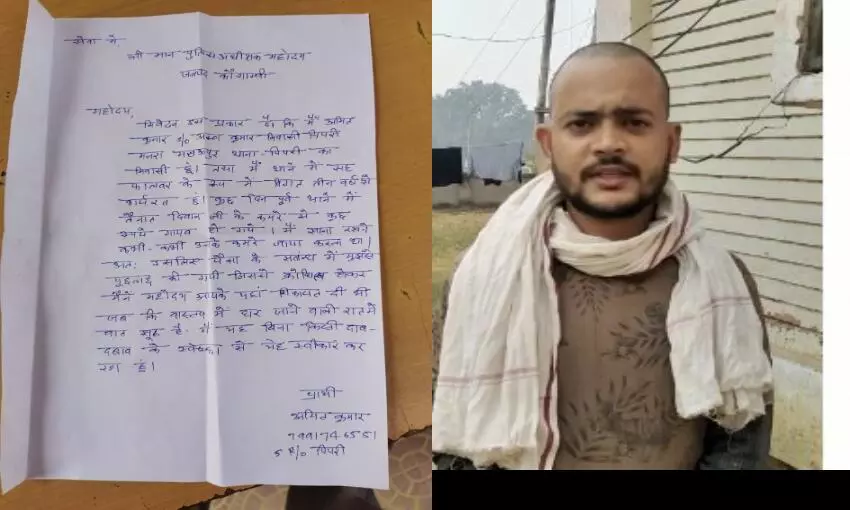 सेवा में,
श्री मान पुलिस अधीक्षक महोदय
जनपद कौशाम्बी
महोदय,
निवेदन इस प्रकार है। कि मैं अमित
कुमार S/o कुमार निवासी पिपरी
थाना-पिपरी का
निवासी हूं। तथा मैं थाने में सह
के रूप में विगत तीन वर्ष से
कार्यरत हूं। कुछ दिन पूर्व थाने में
तैनात दिवान जी के कमरे से कुछ
रुपये गायब हो गये। मैं खाना रखने
कभी-कभी उनके कमरे जाया करता था।
अतः उसमिस पैसा के सम्बन्ध में मुझसे
पूछताछ की गयी जिससे होकर
मैंने महोदय आपके यहां शिकायत दी थी
जब कि वास्तव में मारे जाने वाली
बात झूठ है। मैं यह बिना किसी दाब-
दबाव के स्वेच्छा से यह स्वीकार कर
रहा हूं।
प्रार्थी
अमित कुमार
R/o पिपरी